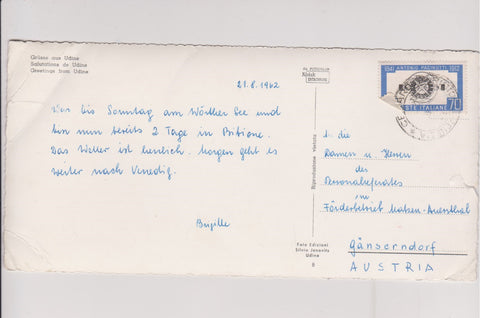 Grüsse aus Udine
Salutations de Udine
Greetings from Udine
21.8.1962
War bis Sonntag am Wörther See und
bin nun bereits 2 Tage in Bibione.
Das Wetter ist herrlich. Morgen geht es
weiter nach Venedig.
Brigitte
Kodak
Riproduzione vietata
Foto Edizioni
Udine
8
1847 ANTONIO PACINOTTI 1912
POSTE ITALIANE 70
An die
Damen u. Herren
des
Personalreferates
im
Förderbetrieb Matzen-Auersthal
Gänserndorf
AUSTRIA